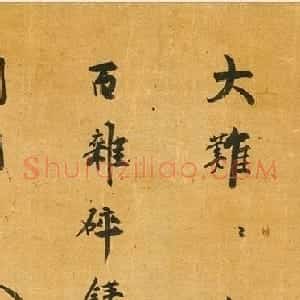 大難〻
百雜碎
Shufaziliao.com